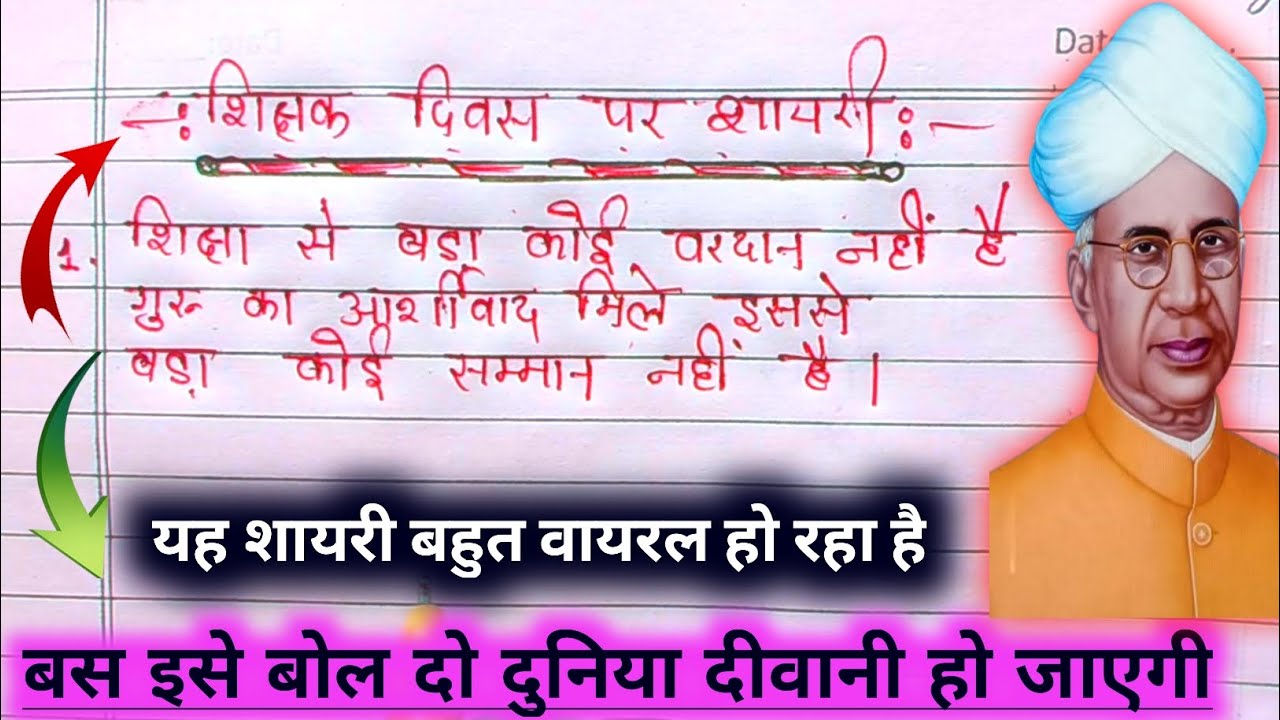 Date
-: शिक्षक दिवस पर शायरी :-
1. शिक्षा से बड़ा कोई वरदान नहीं है
गुरू का आर्शीवाद मिले इससे
बड़ा कोई सम्मान नहीं है।
यह शायरी बहुत वायरल हो रहा है
बस इसे बोल दो दुनिया दीवानी हो जाएगी